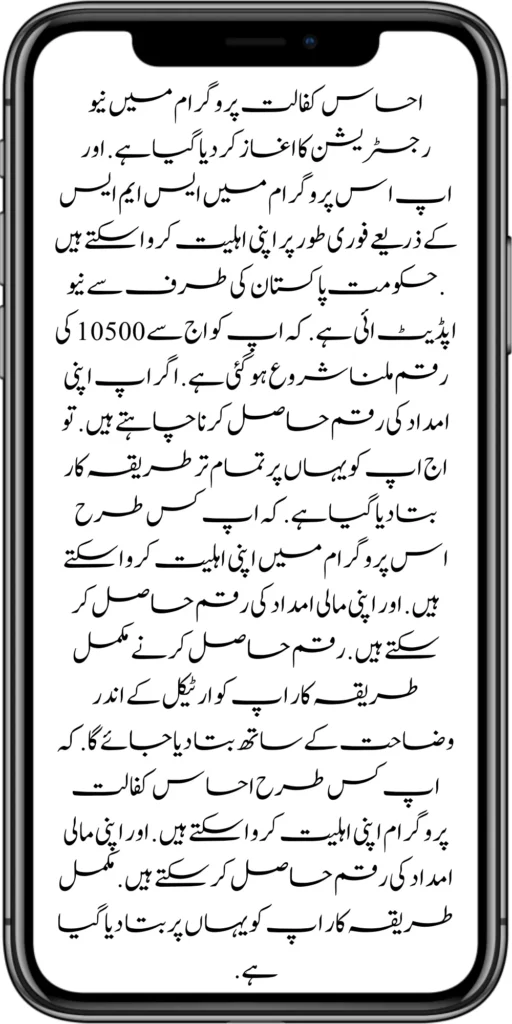 احساس کفالت پروگرام میں نیو
رجسٹریشن کا اغاز کر دیا گیا ہے. اور
اپ اس پروگرام میں ایس ایم ایس
کے ذریعے فوری طور پر اپنی اہلیت کروا سکتے ہیں
.حکومت پاکستان کی طرف سے نیو
اپڈیٹ ائی ہے. کہ اپ کو اج سے 10500 کی
رقم ملنا شروع ہو گئی ہے. اگر اپ اپنی
امداد کی رقم حاصل کرنا چاہتے ہیں. تو
اج اپ کو یہاں پر تمام تر طریقہ کار
بتا دیا گیا ہے. کہ اپ کس طرح
اس پروگرام میں اپنی اہلیت کروا سکتے
ہیں. اور اپنی مالی امداد کی رقم حاصل کر
سکتے ہیں. رقم حاصل کرنے مکمل
طریقہ کار اپ کو ارٹیکل کے اندر
وضاحت کے ساتھ بتا دیا جائے گا. کہ
اپ کس طرح احساس کفالت
پروگرام اپنی اہلیت کروا سکتے ہیں. اور اپنی مالی
امداد کی رقم حاصل کر سکتے ہیں. مکمل
طریقہ کار اپ کو یہاں پر بتا دیا گیا
ہے.